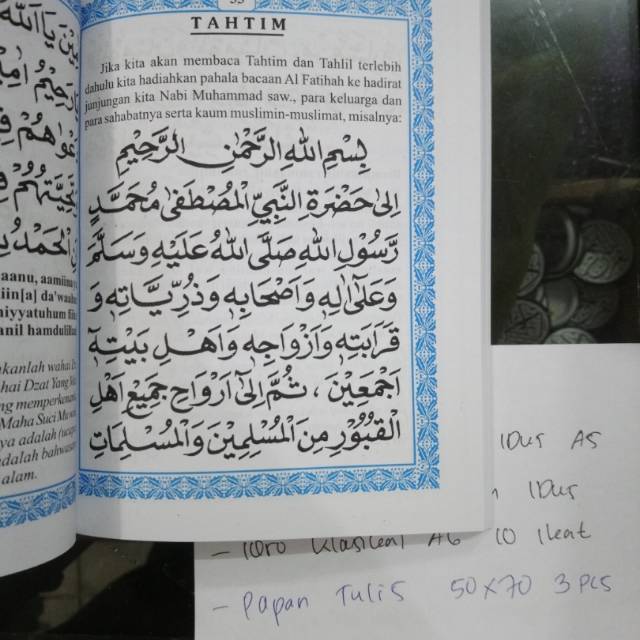 TAHTIM
Jika kita akan membaca Tahtim dan Tahlil terlebih
dahulu kita hadiahkan pahala bacaan Al Fatihah ke hadirat
junjungan kita Nabi Muhammad saw., para keluarga dan
para sahabatnya serta kaum muslimin-muslimat, misalnya:
بِسْمِ اللهِ الرَّحْمٰنِ الرَّحِيْمِ
اِلٰى حَضْرَةِ النَّبِيِّ الْمُصْطَفٰى مُحَمَّدٍ
رَّسُوْلِ اللهِ صَلَّى اللهُ عَلَيْهِ وَسَلَّمَ
وَعَلٰى اٰلِهٖ وَاَصْحَابِهٖ وَذُرِّيَّاتِهٖ وَ
قَرَابَتِهٖ وَاَزْوَاجِهٖ وَاَهْلِ بَيْتِهٖ
اَجْمَعِيْنَ ، ثُمَّ اِلٰى اَرْوَاحِ جَمِيْعِ اَهْلِ
الْقُبُوْرِ مِنَ الْمُسْلِمِيْنَ وَالْمُسْلِمَاتِ
aanu, aamiin
iin[a] da'waa
iyyatuhum fii
anil hamdulilla
kanlah wahai
hai Dzat Yang
ng memperkenan
Maha Suci
ya adalah
dalah bahwa
alam.
1Dus A5
1Dus
A6 10 Ikat
- Papan Tulis 50x70 3 pcs